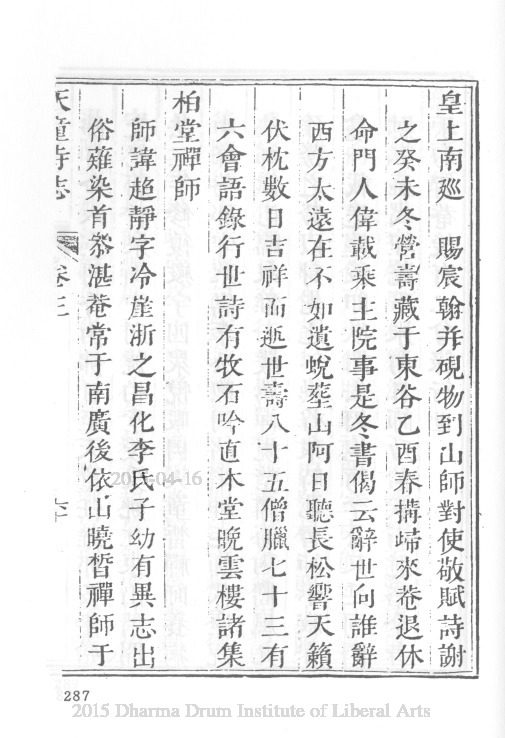 皇上南廵　賜宸翰并硯物到山師對使敬賦詩謝
之癸未冬營壽藏于東谷乙酉春搆歸來菴退休
命門人偉載乘主院事是冬書偈云辭世向誰辭
西方太遠在不如遺蛻塟山阿日聽長松響天籟
伏枕數日吉祥而逝世壽八十五僧臘七十三有
六會語錄行世詩有牧石吟直木堂晚雲樓諸集
柏堂禪師
師諱趍靜字冷崖浙之昌化李氏子幼有異志出
俗薙染首叅湛菴常于南廣後依山曉晳禪師于
天童寺志　卷三　六十
2015-04-16
287
2015 Dharma Drum Institute of Liberal Arts